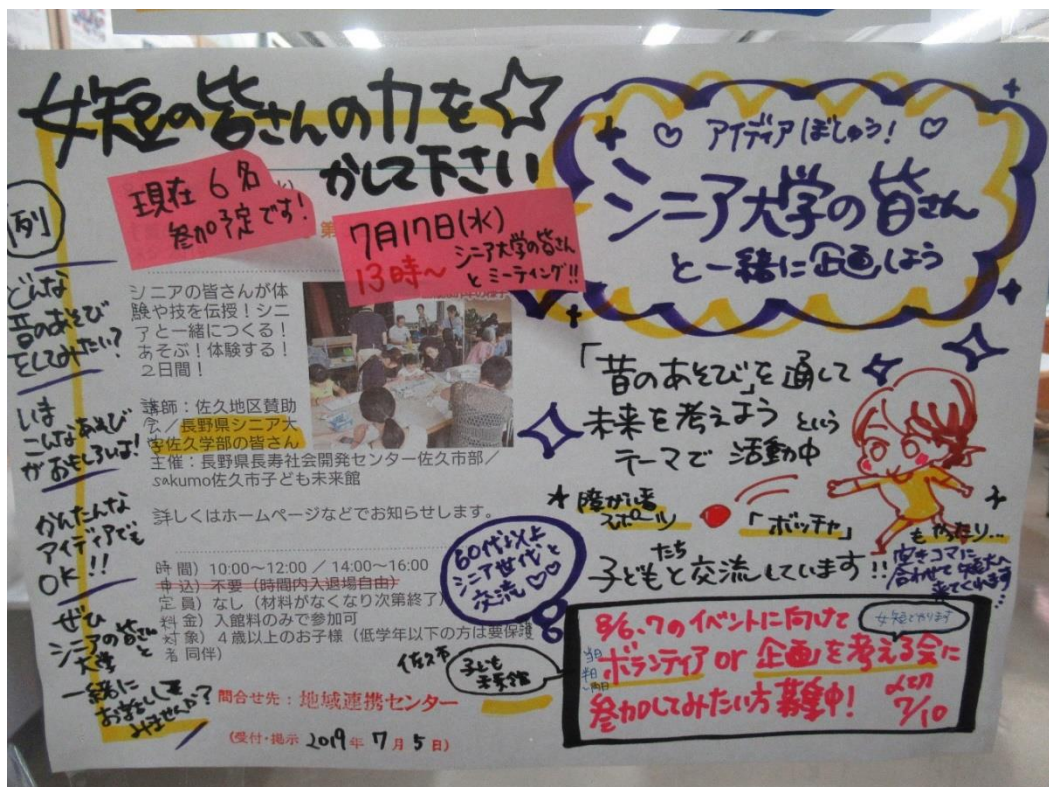 女短の皆さんの力を☆
かして下さい
現在6名
参加予定です!
7月17日(水)
13時～
シニア大学の皆さん
とミーティング!!
アイディアぼしゅう!
シニア大学の皆さん
と一緒に企画しよう
例
どんな
昔のあそび
をしてみたい?
いま
こんなあそび
がおもしろいよ!
かんたんな
アイディアでも
OK!!
ぜひ
シニアの皆さんと
大学
一緒に
お話しても
みませんか?
シニアの皆さんが体
験や技を伝授!シニ
アと一緒につくる!
あそぶ!体験する!
2日間!
講師:佐久地区賛助
会/長野県シニア大
学佐久学部の皆さん
主催:長野県長寿社会開発センター佐久市部/
sakumo佐久市子ども未来館
詳しくはホームページなどでお知らせします。
時間) 10:00~12:00 / 14:00~16:00
申込) 不要(時間内入退場自由)
定員) なし(材料がなくなり次第終了)
料金) 入館料のみで参加可
対象) 4歳以上のお子様(低学年以下の方は要保護
者同伴)
問合せ先:地域連携センター
(受付・掲示 2019年 7月 5日)
「昔のあそび」を通して
未来を考えよう という
テーマで 活動中
障がい者
スポーツ
「ボッチャ」
もやったり…
60代以上
シニア世代と
交流♡♡
子どもたちと交流しています!!
空きコマに
合わせて短大へ
来てくれます
佐久市
子ども
未来館
8/6、7のイベントに向けて
女短でやります
当日
半日
両日
ボランティア or 企画を考える会に
参加してみたい方 募集中!
〆切
7/10